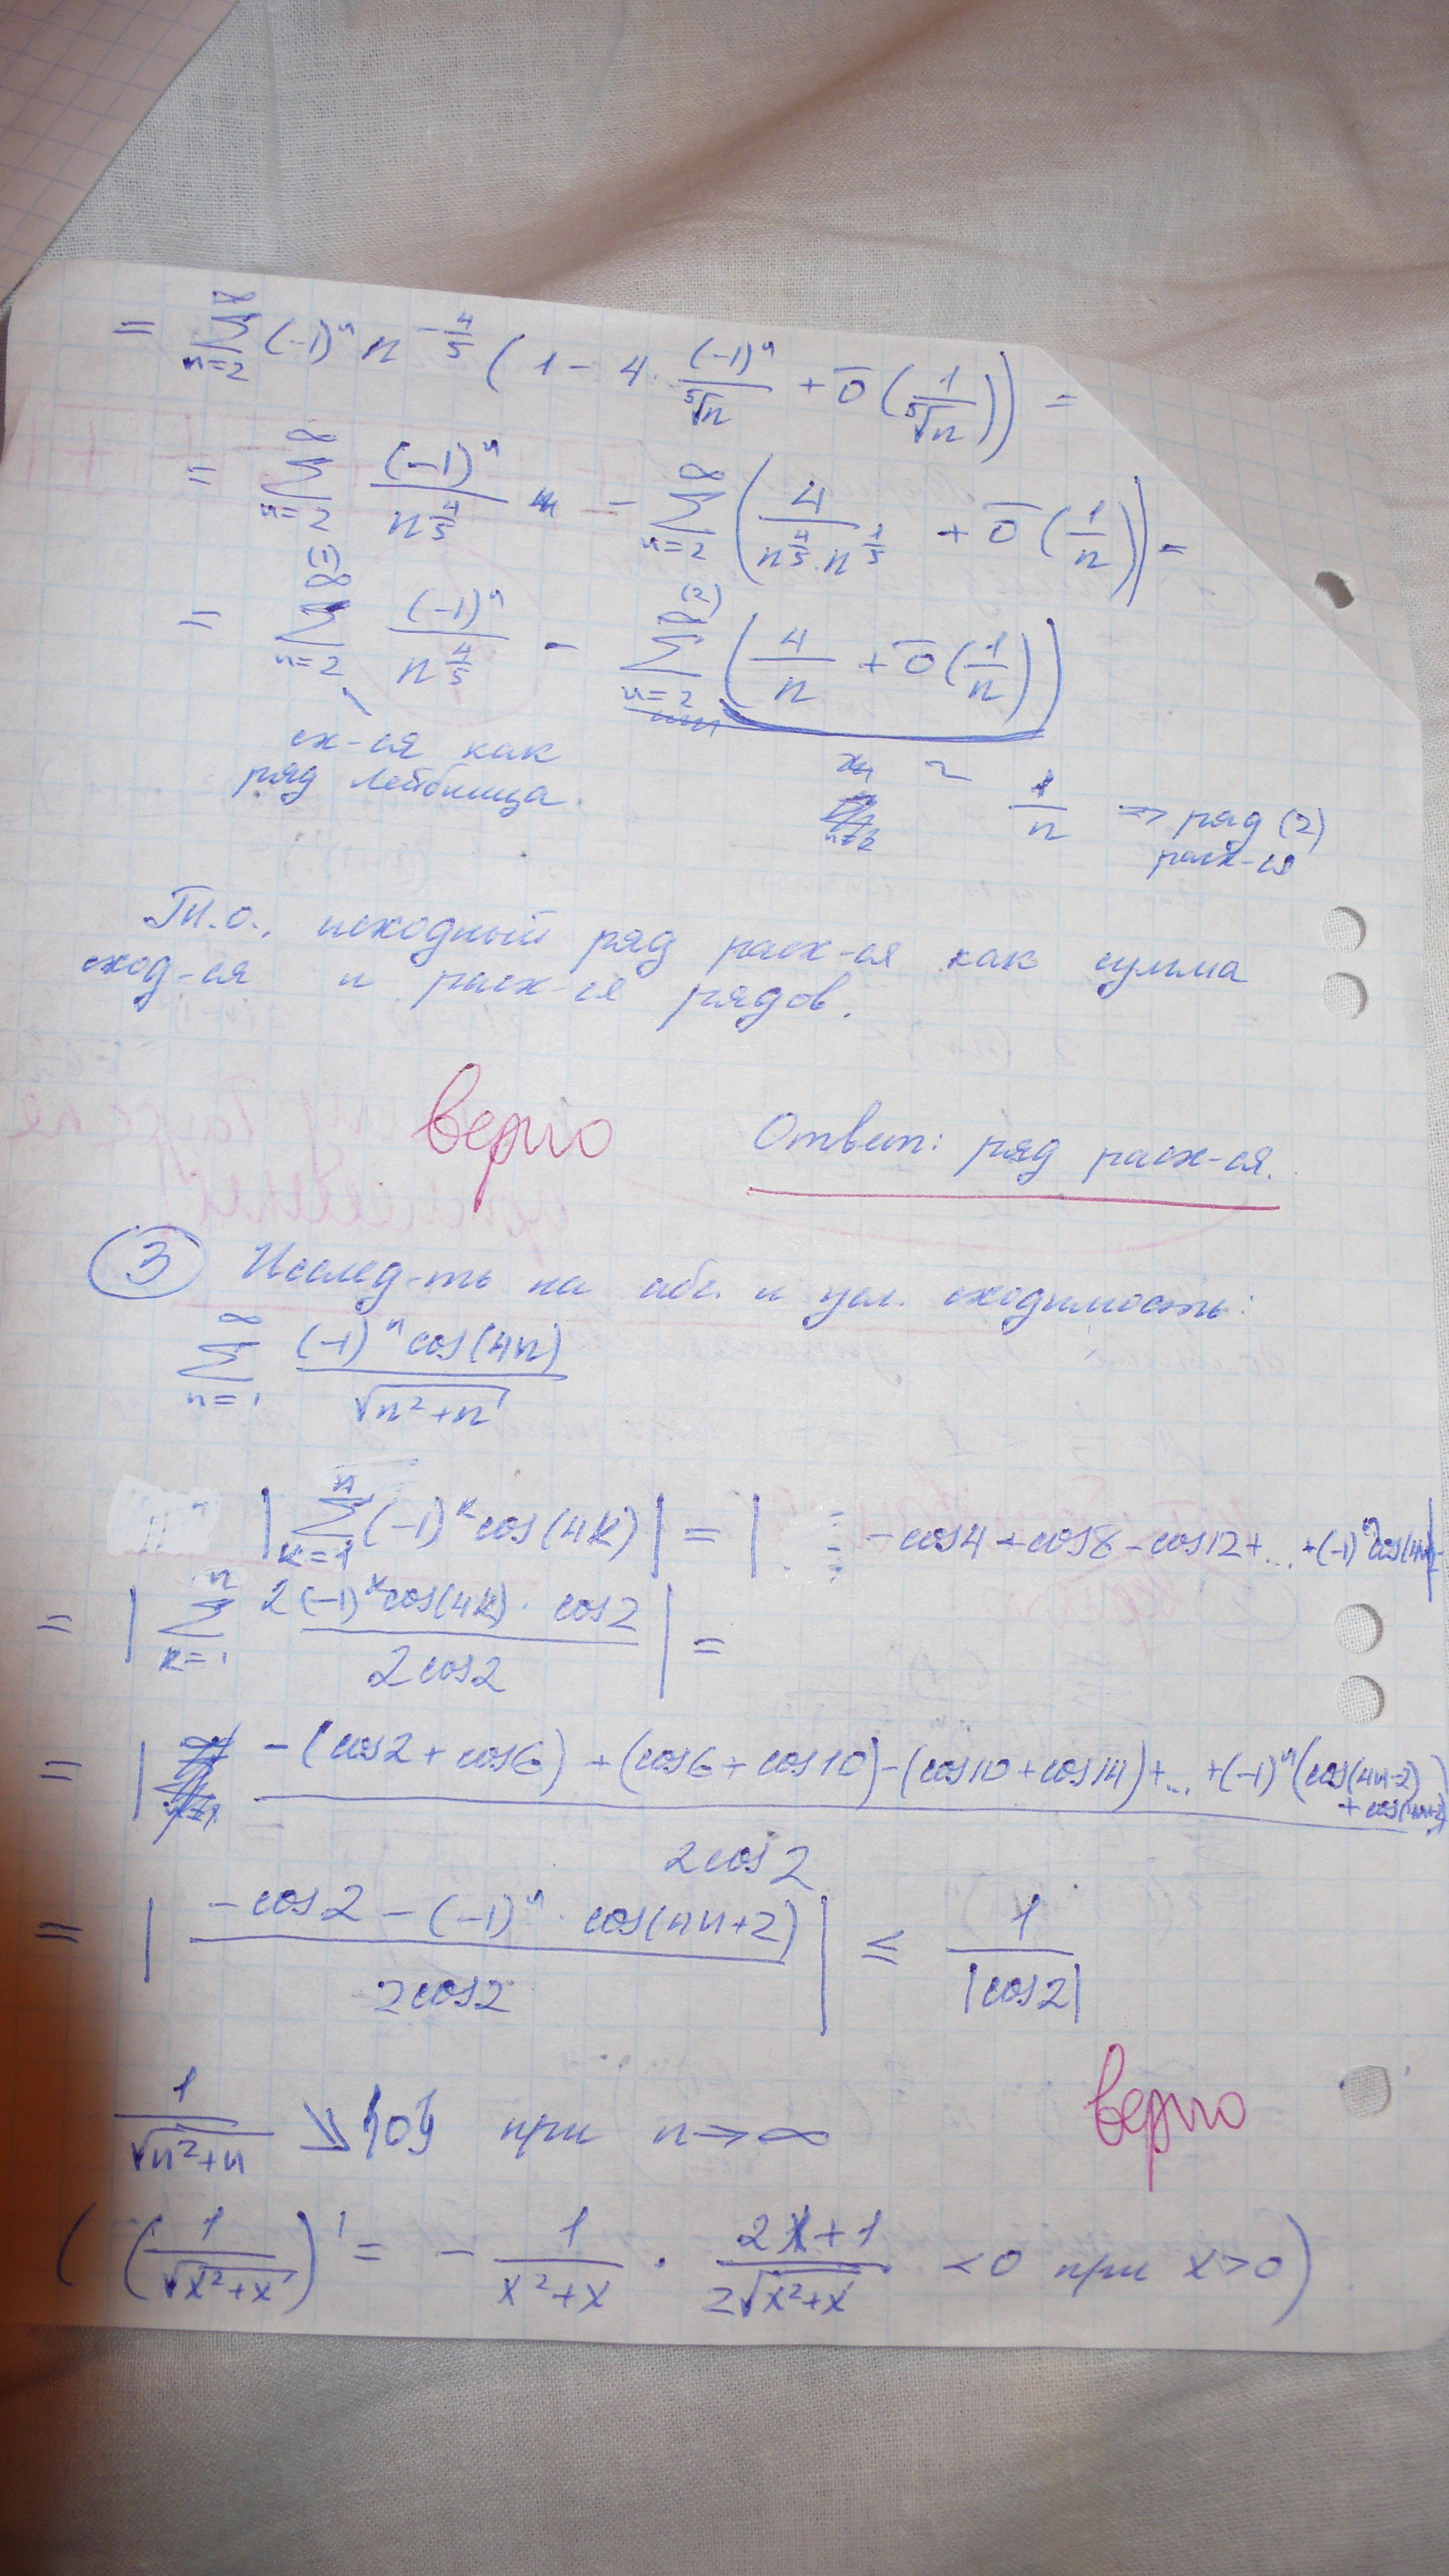 = \sum_{n=2}^{\infty} (-1)^n n^{-\frac{4}{5}} (1 - 4 \cdot \frac{(-1)^n}{\sqrt[5]{n}} + \overline{o}(\frac{1}{\sqrt[5]{n}})) =
= \sum_{n=2}^{\infty} \frac{(-1)^n}{n^{\frac{4}{5}}} - \sum_{n=2}^{\infty} (\frac{4}{n^{\frac{4}{5}} \cdot n^{\frac{1}{5}}} + \overline{o}(\frac{1}{n})) =
(1) (2)
= \sum_{n=2}^{\infty} \frac{(-1)^n}{n^{\frac{4}{5}}} - \sum_{n=2}^{\infty} (\frac{4}{n} + \overline{o}(\frac{1}{n}))
сх-ся как
ряд Лейбница.
~ \frac{1}{n} => ряд (2)
расх-ся
Т.о., исходный ряд расх-ся как сумма
сход-ся и расх-ся рядов.
верно
Ответ: ряд расх-ся.
③ Исслед-ть на абс. и усл. сходимость:
\sum_{n=1}^{\infty} \frac{(-1)^n cos(4n)}{\sqrt{n^2+n}}
|\sum_{k=1}^{n} (-1)^k cos(4k)| = | - cos4 + cos8 - cos12 + ... + (-1)^n cos(4n)| =
= |\sum_{k=1}^{n} \frac{2(-1)^k cos(4k) \cdot cos2}{2cos2}| =
= |\frac{-(cos2 + cos6) + (cos6 + cos10) - (cos10 + cos14) + ... + (-1)^n (cos(4n-2) + cos(4n+2))}{2cos2}|
= |\frac{-cos2 - (-1)^n \cdot cos(4n+2)}{2cos2}| ≤ \frac{1}{|cos2|}
\frac{1}{\sqrt{n^2+n}} ↘ {0} при n→∞
верно
((\frac{1}{\sqrt{x^2+x}})' = -\frac{1}{x^2+x} \cdot \frac{2x+1}{2\sqrt{x^2+x}} < 0 при x>0)